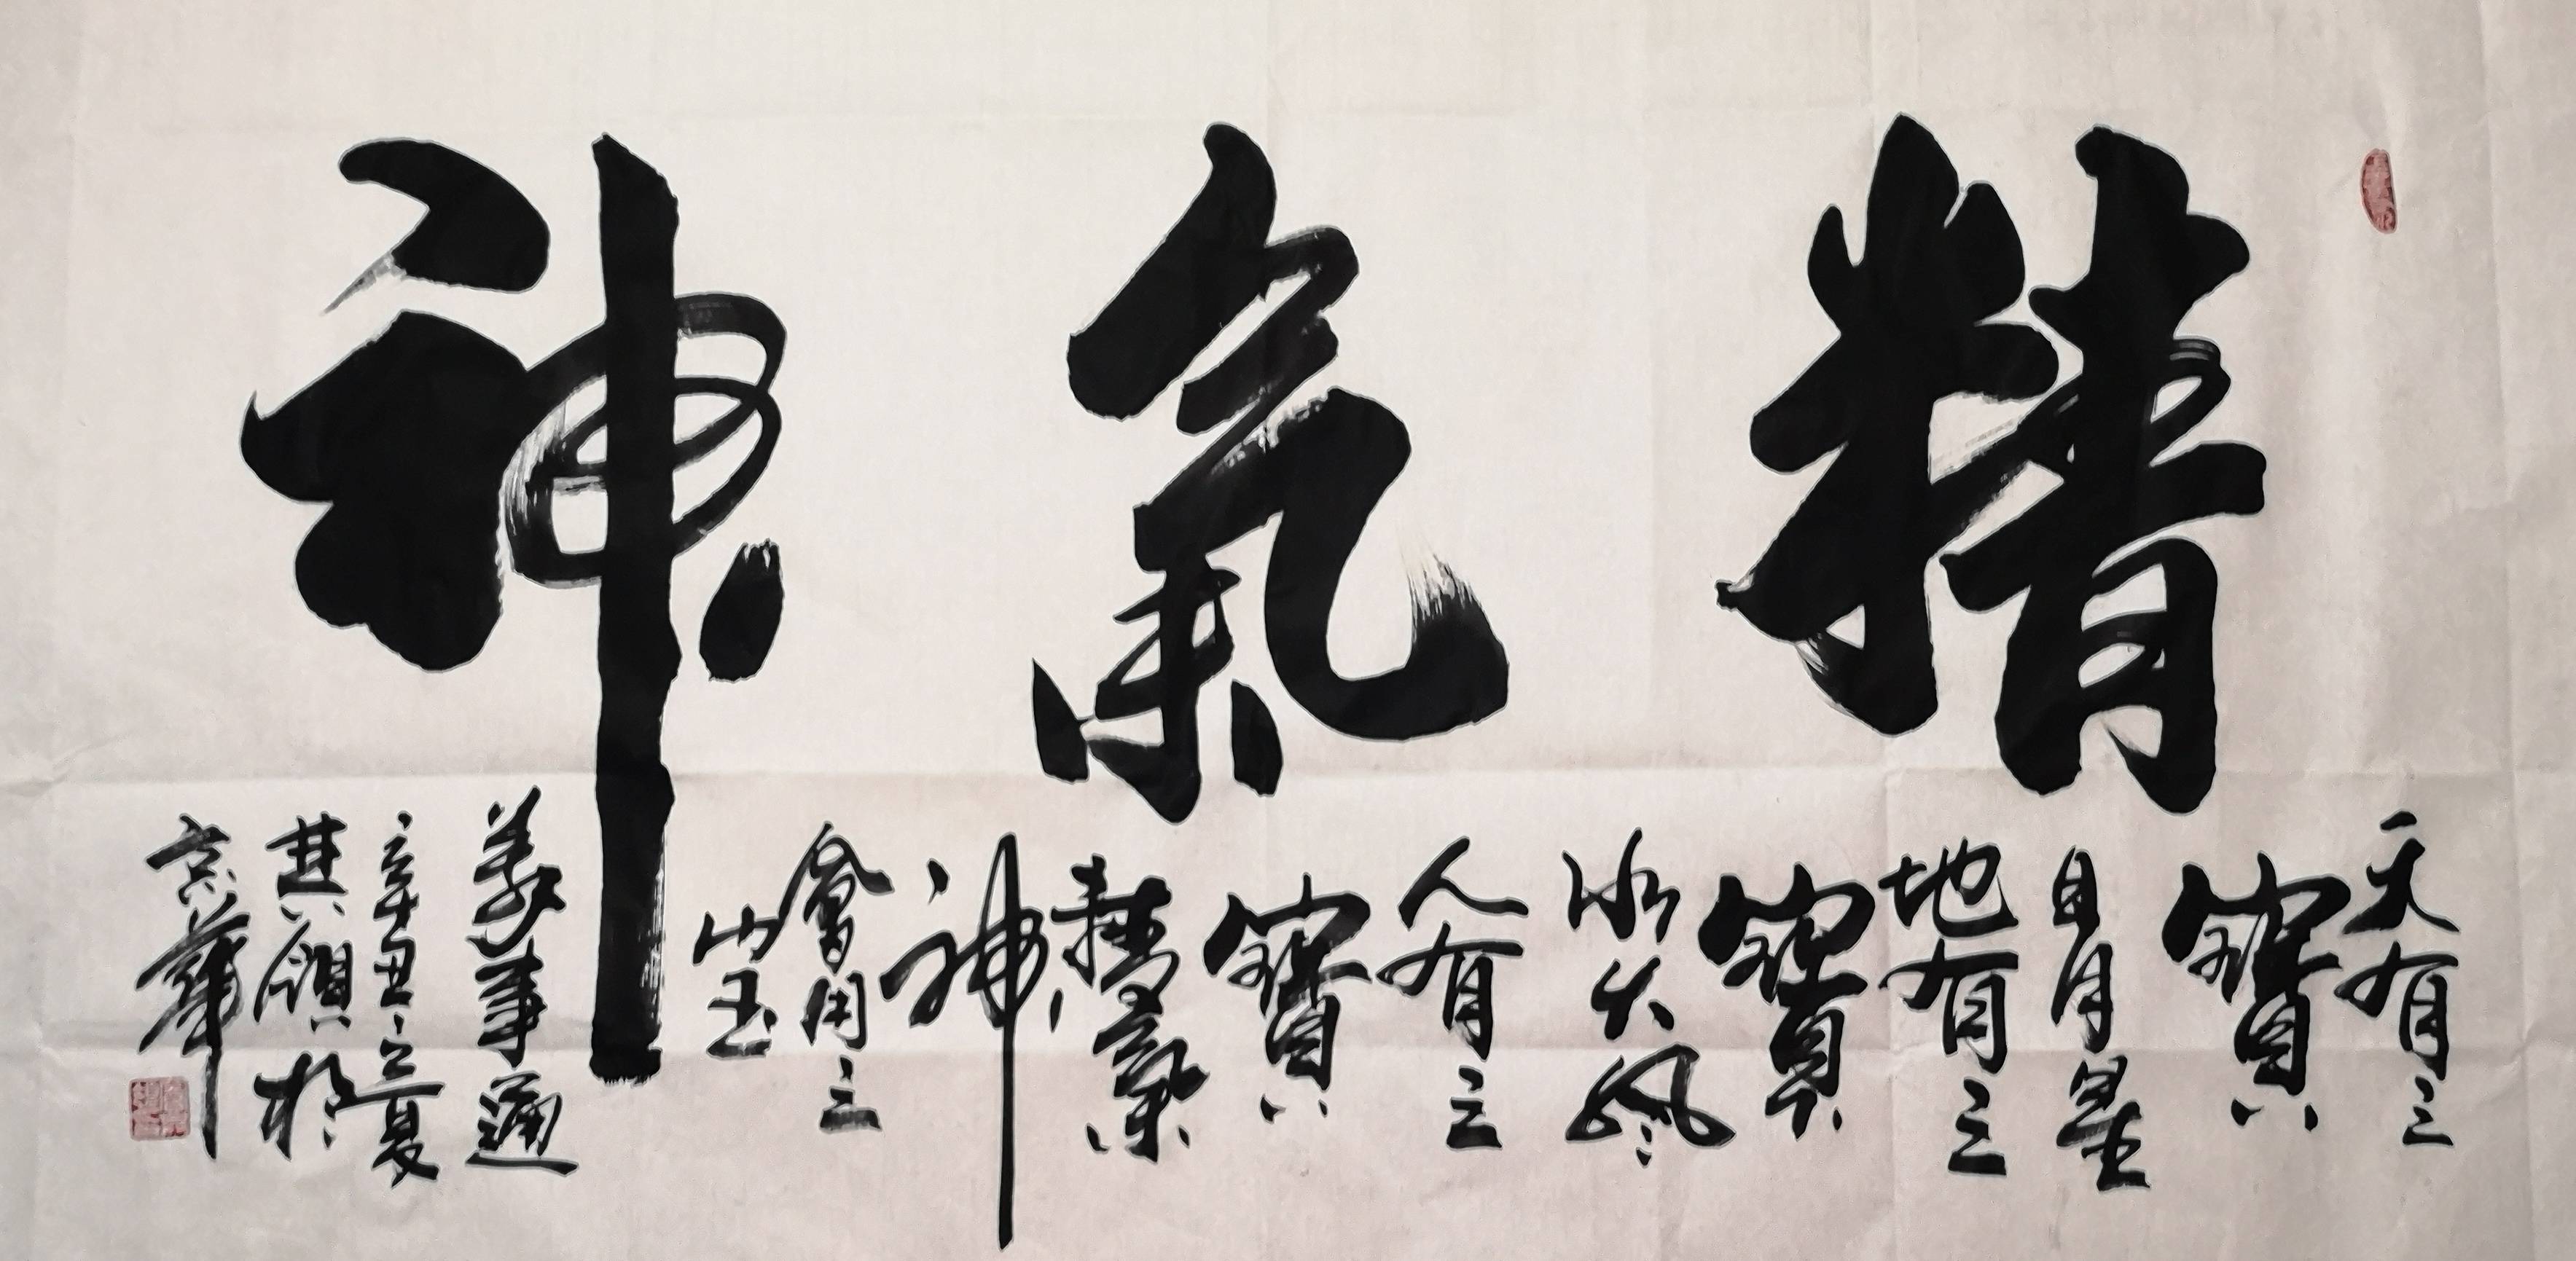 精氣神
天有三
寶
日月星
地有三
寶
水火風
人有三
寶
精氣
神
會用三
宝
萬事通
辛丑立夏
於
京華